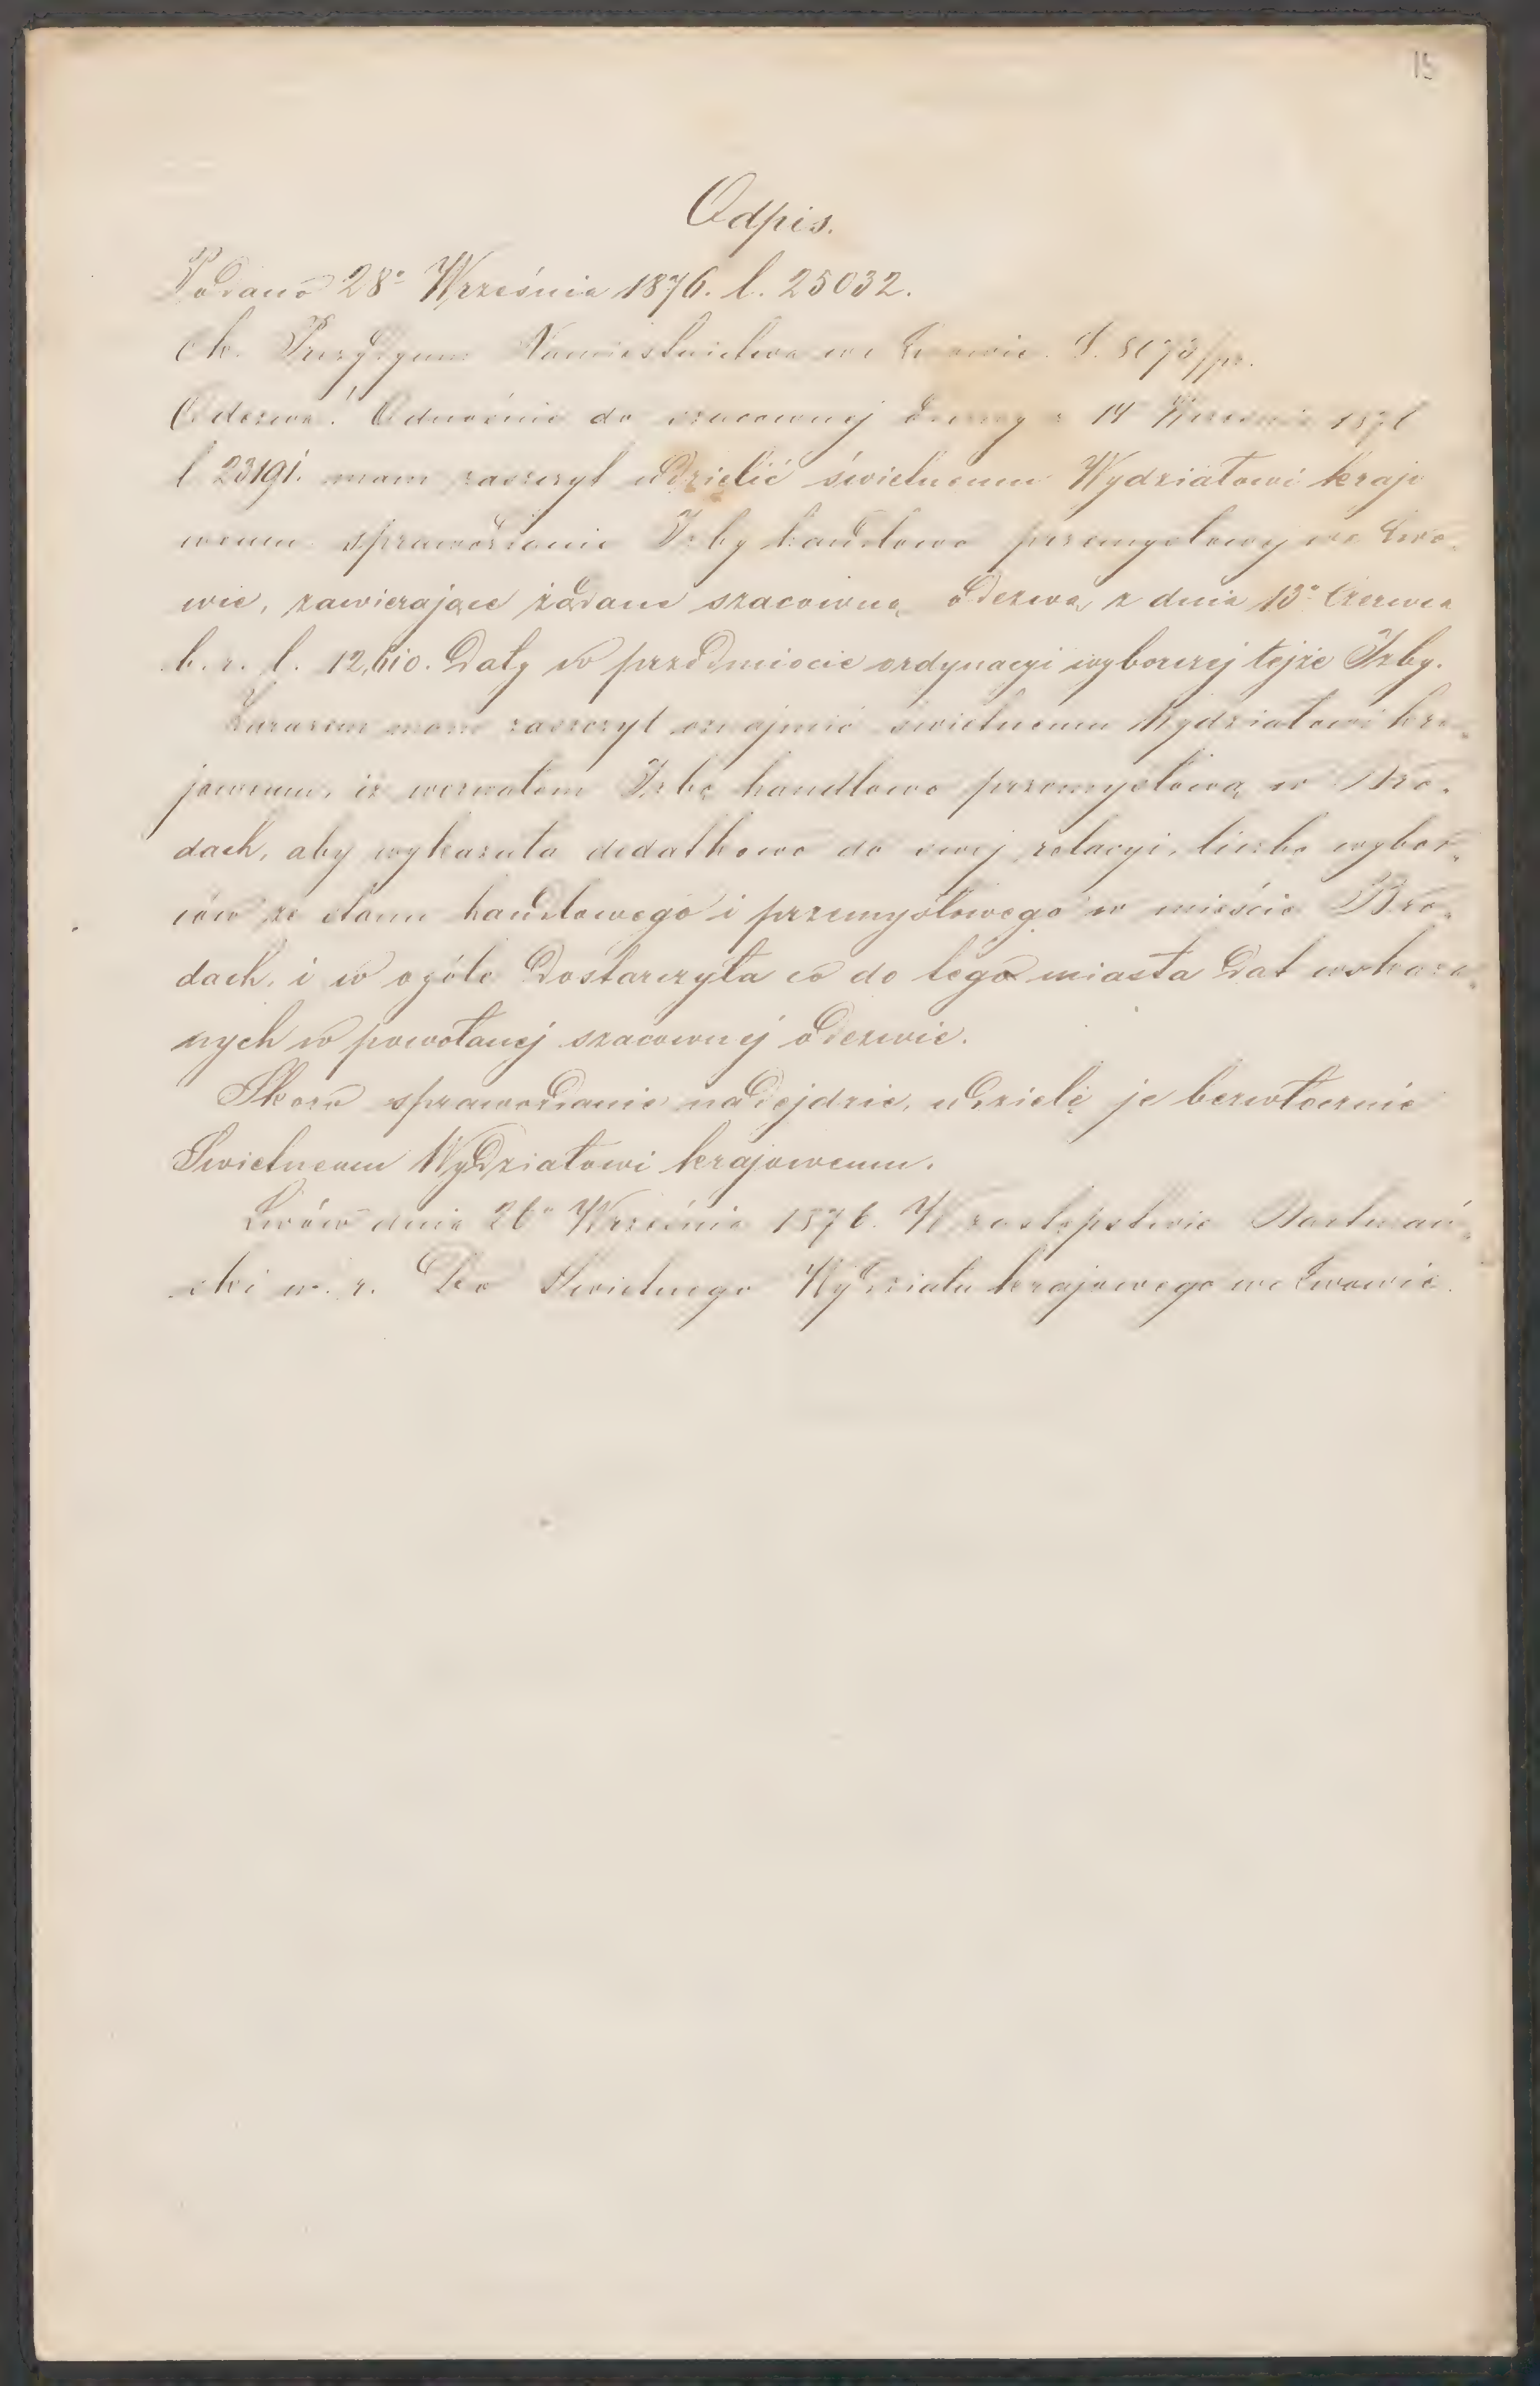 15
Odpis.
Podano 28º Września 1876. l. 25032.
Ck. Prezydyum Namiestnictwa we Lwowie. L. 5073/pr.
Odezwa! Odnośnie do szacownej odezwy z 14 Września 1876
l 23191. mam zaszczyt udzielić świetnemu Wydziałowi krajo
wemu sprawozdanie Izby handlowo przemysłowej we Lwo„
wie, zawierające żądane szacowną odezwą z dnia 13º Czerwca
b. r. l. 12,610. Daty w przedmiocie ordynacyi wyborczej tejże Izby.
Zarazem mam zaszczyt oznajmić świetnemu Wydziałowi kra„
jowemu, iż wezwałem Izbę handlowo przemysłową w Bro„
dach, aby wykazała dodatkowo do swej relacyi, liczbę wybor„
ców ze stanu handlowego i przemysłowego w mieście Bro„
dach, i w ogóle dostarczyła co do tego miasta dat wskaza„
nych w powołanej szacownej odezwie.
Skoro sprawozdanie nadejdzie, udzielę je bezwłocznie
Swietnemu Wydziałowi krajowemu.
Lwów dnia 26º Września 1876. W zastępstwie Bartmań„
ski w. r. Do Swietnego Wydziału krajowego we Lwowie.